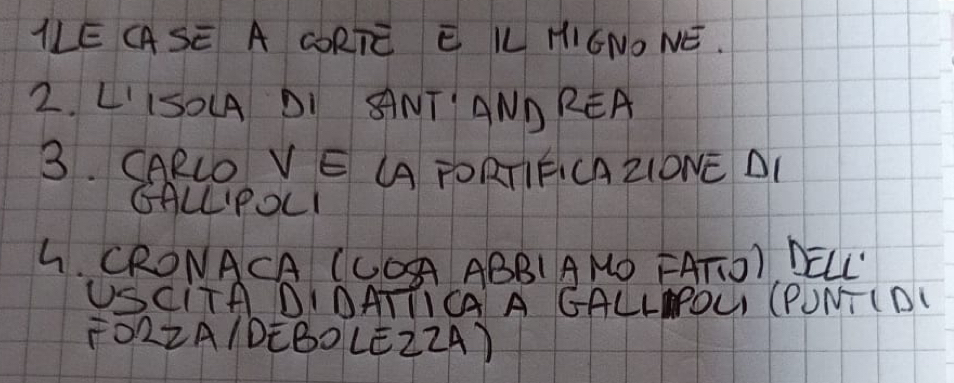 1 LE CASE A CORTE E IL MIGNONE.
2. L'ISOLA DI SANT'ANDREA
3. CARLO V E LA FORTIFICAZIONE DI
GALLIPOLI
4. CRONACA (COSA ABBIAMO FATTO) DELL'
USCITA DIDATTICA A GALLIPOLI (PUNTI DI
FORZA/DEBOLEZZA)